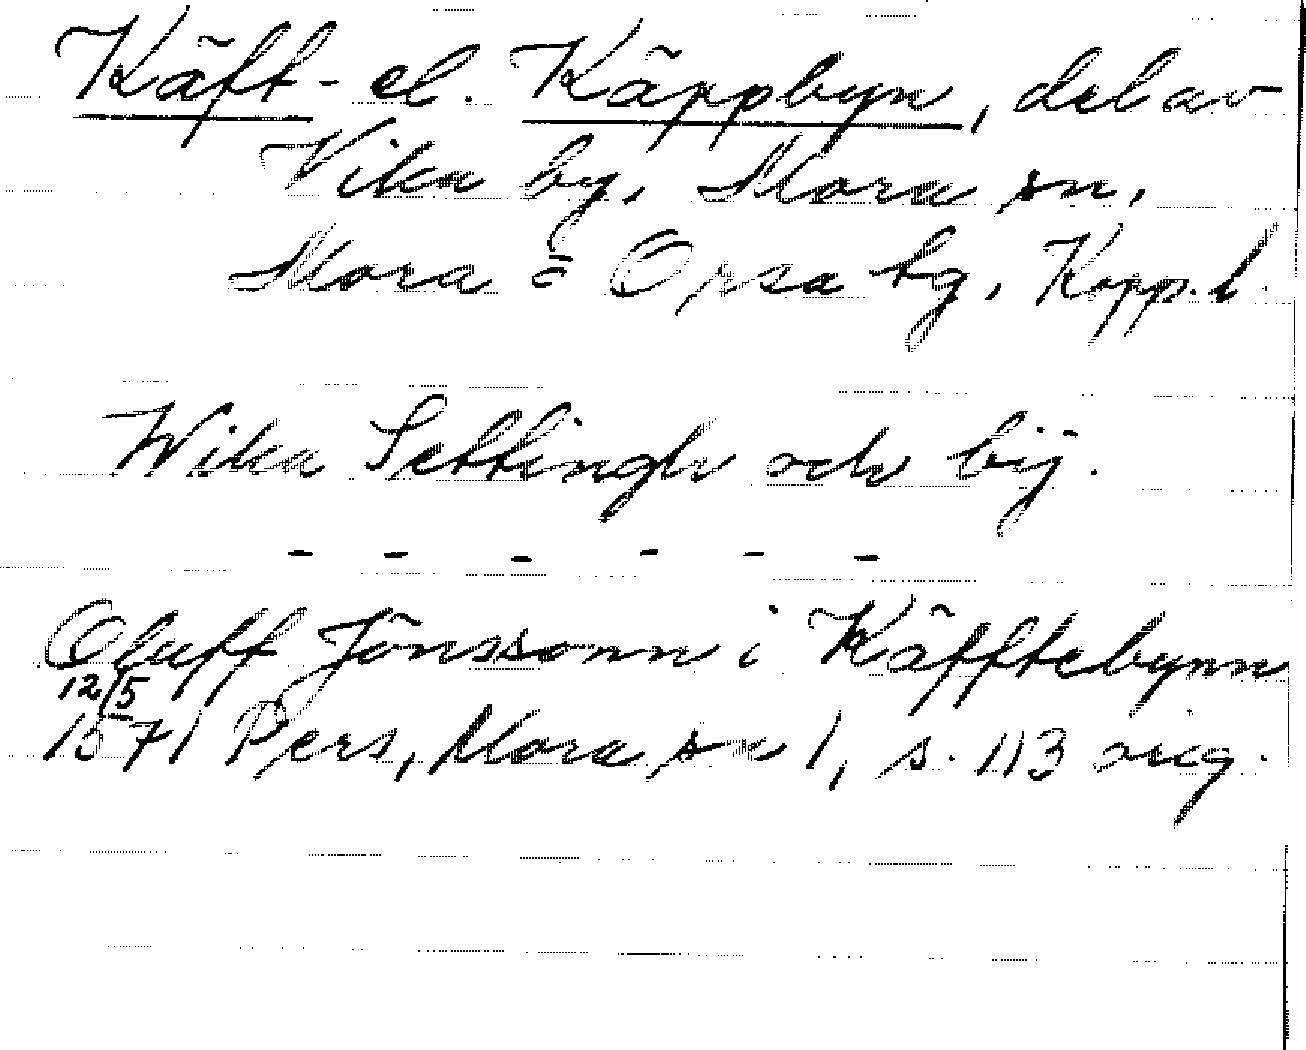 Käft- el. Käppbyn, del av
Vika by, Mora sn,
Mora o Orsa tg, Kopp.l.
Wika Settingh och bÿ.
- - - - - -
Oluff Jönssonn i Käfftebynn
12/5
1571 Pers, Mora sn 1, s. 113 orig.